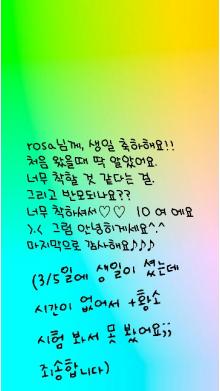 rosa님께, 생일 축하해요!!
처음 왔을때 딱 알았어요.
너무 착할 것 같다는 걸.
그리고 반모되나요??
너무 착하셔서♡♡ 10 여 예요
>.< 그럼 안녕히계세요^.^
마지막으로 감사해요♪♪♪
(3/5일에 생일이 셨는데
시간이 없어서 +황소
시험 봐서 못 봤어요;;
죄송합니다)